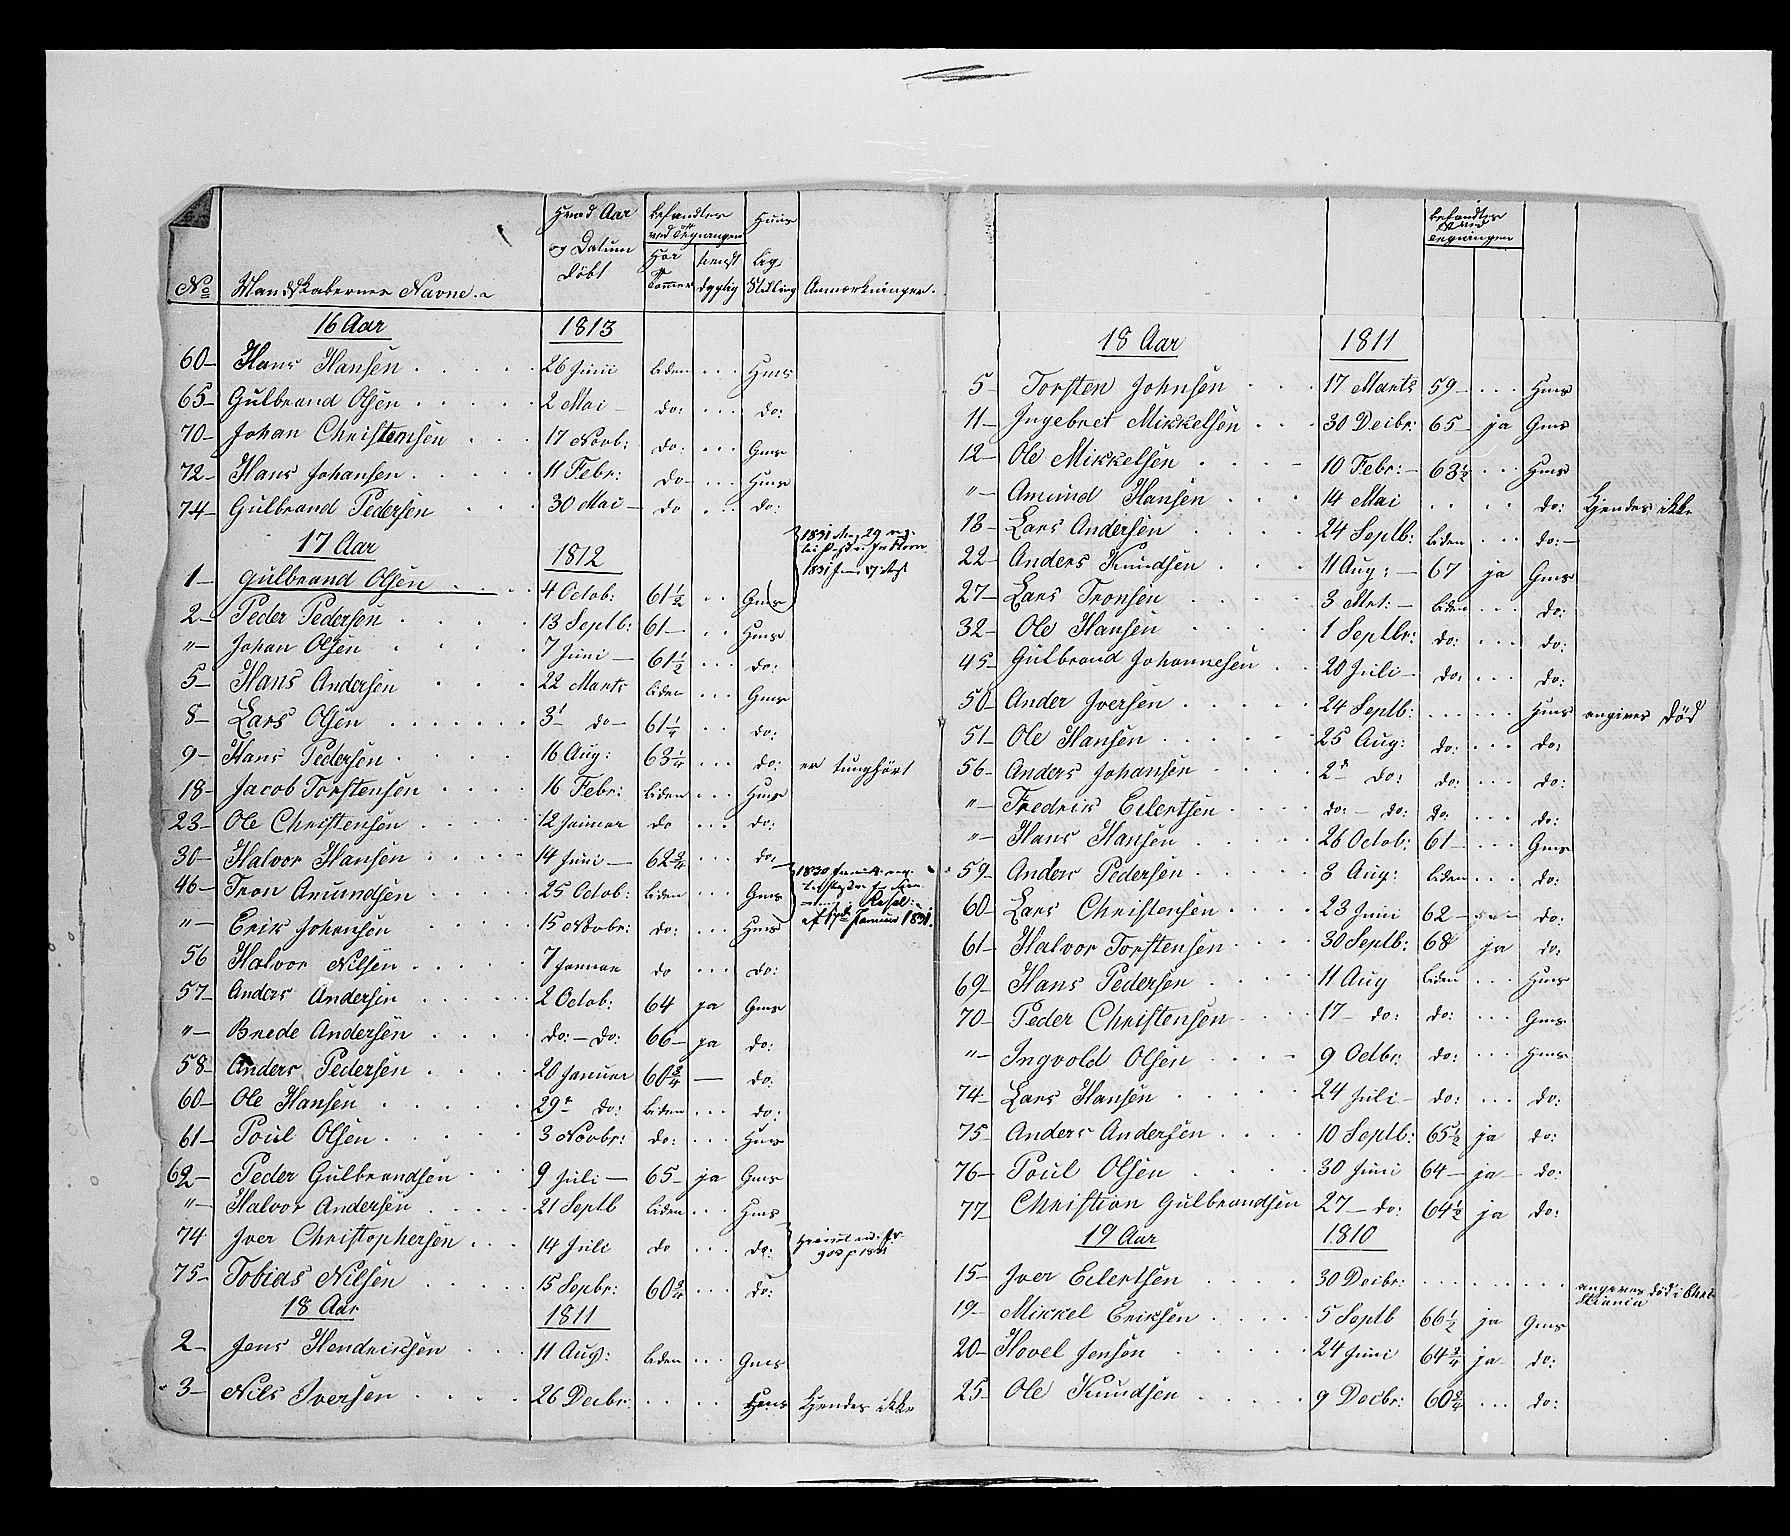 No Mandskabernes Navne. Hvad Aar og Datum döbt befandtes ved Tegningen Höi Tommer tienst dygtig Huus lig Stilling Anmærkninger.
16 Aar 1813
60 Hans Hansen 26 Juni liden Hms
65 Gulbrand Olsen 2 Mai do: do:
70 Johan Christensen 17 Novb: do: Gms
72 Hans Johansen 11 Febr: do Hms
74 Gulbrand Pedersen 30 Mai do do:
17 Aar 1812
1 Gulbrand Olsen 4 Octob: 61 1/2 Gms
2 Peder Pedersen 13 Septb: 61 Hms
"– Johan Olsen 7 Juni 61 1/2 do:
5 Hans Andersen 22 Marts liden Gms
8 Lars Olsen 31 do 61 1/4 do:
9 Hans Pedersen 16 Aug: 63 1/4 do: er tunghört
18 Jacob Torstensen 16 Febr: liden Hms
23 Ole Christensen 12 Januar do do:
30 Halvor Hansen 14 Juni 62 3/4 do:
46 Tron Amundsen 25 Octob: liden Gms
"– Erik Johansen 15 Novbr: do: Hms
56 Halvor Nilsen 7 Januar do do:
57 Anders Andersen 2 Octob: 64 ja Gms
"– Brede Andersen do: – do: 66 ja do:
58 Anders Pedersen 20 Januar 60 3/4 — do:
60 Ole Hansen 29 do: liden do:
61 Poul Olsen 3 Novbr: do: Hms
62 Peder Gulbrandsen 9 Juli 65 ja Gms
"– Halvor Andersen 21 Septb liden Hms
74 Iver Christophersen 14 Juli do do:
75 Tobias Nilsen 15 Sepbr: 60 3/4 do:
18 Aar 1811
2 Jens Hendriksen 11 Aug: liden Gms
3 Nils Iversen 26 Decbr: Hms Kjendes ikke
befandtes ved Tegningen
18 Aar 1811
5 Torsten Johnsen 17 Marts 59 Hms
11 Ingebret Mikkelsen 30 Decbr: 65 ja Gms
12 Ole Mikkelsen 10 Febr: 63 1/2 Hms
"– Amund Hansen 14 Mai do: Kjendes ikke
18 Lars Andersen 24 Septb: liden do:
22 Anders Knudsen 11 Aug: 67 ja Gms
27 Lars Tronsen 3 Mrt: liden do:
32 Ole Hansen 1 Septbr: do: do:
45 Gulbrand Johannesen 20 Juli do: do:
50 Ander Iversen 24 Septb: Hms angives död
51 Ole Hansen 25 Aug: do: do:
56 Anders Johansen 2 do: do: do:
"– Fredrik Eilertsen do: – do: do: do:
"– Hans Hansen 26 Octob: 61 Gms
59 Anders Pedersen 8 Aug: liden do:
60 Lars Christensen 23 Juni 62 do:
61 Halvor Torstensen 30 Septb: 68 ja do:
69 Hans Pedersen 11 Aug liden Hms
70 Peder Christensen 17 do: do: Gms
"– Ingvold Olsen 9 Octbr: do: Hms
74 Lars Hansen 24 Juli do: do:
75 Anders Andersen 10 Septb: 65 1/2 ja do:
76 Poul Olsen 30 Juni 64 ja do:
77 Christian Gulbrandsen 27 do: 64 1/2 ja do:
19 Aar 1810
15 Iver Eilertsen 30 Decbr: angives död i Christiania
19 Mikkel Eriksen 5 Septb 66 1/2 ja Gms
20 Hovel Jensen 24 Juni 64 3/4 ja do:
25 Ole Knudsen 9 Decbr: 60 3/4 do: